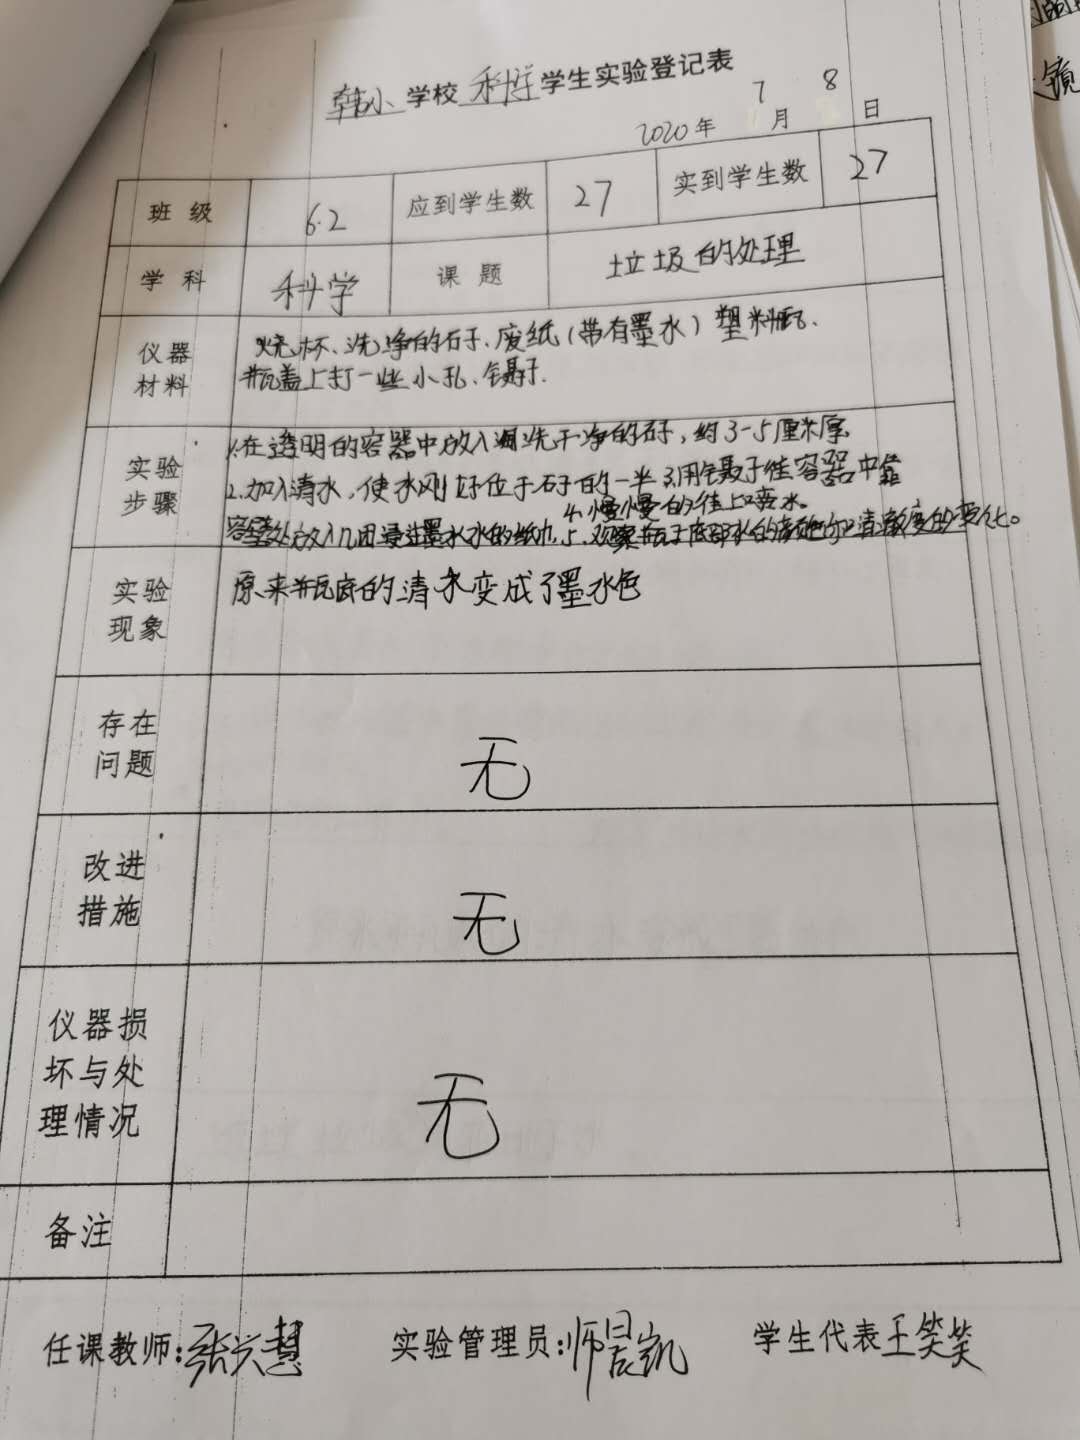 韩小学校科学学生实验登记表
2020年7月8日
班级 6.2 应到学生数 27 实到学生数 27
学科 科学 课题 垃圾的处理
仪器材料 烧杯、洗净的石子、废纸(带有墨水)塑料瓶、
瓶盖上打一些小孔、镊子.
实验步骤 1.在透明的容器中放入清洗干净的石子,约3-5厘米厚
2.加入清水,使水刚好位于石子的一半 3.用镊子往容器中靠
4.慢慢的往上喷水。
容器处放入几团浸过墨水水的纸巾 5.观察瓶子底部水的清澈度的变化。
实验现象 原来瓶底的清水变成了墨水色
存在问题 无
改进措施 无
仪器损坏与处理情况 无
备注
任课教师:张慧 实验管理员:师晨凯 学生代表王笑笑